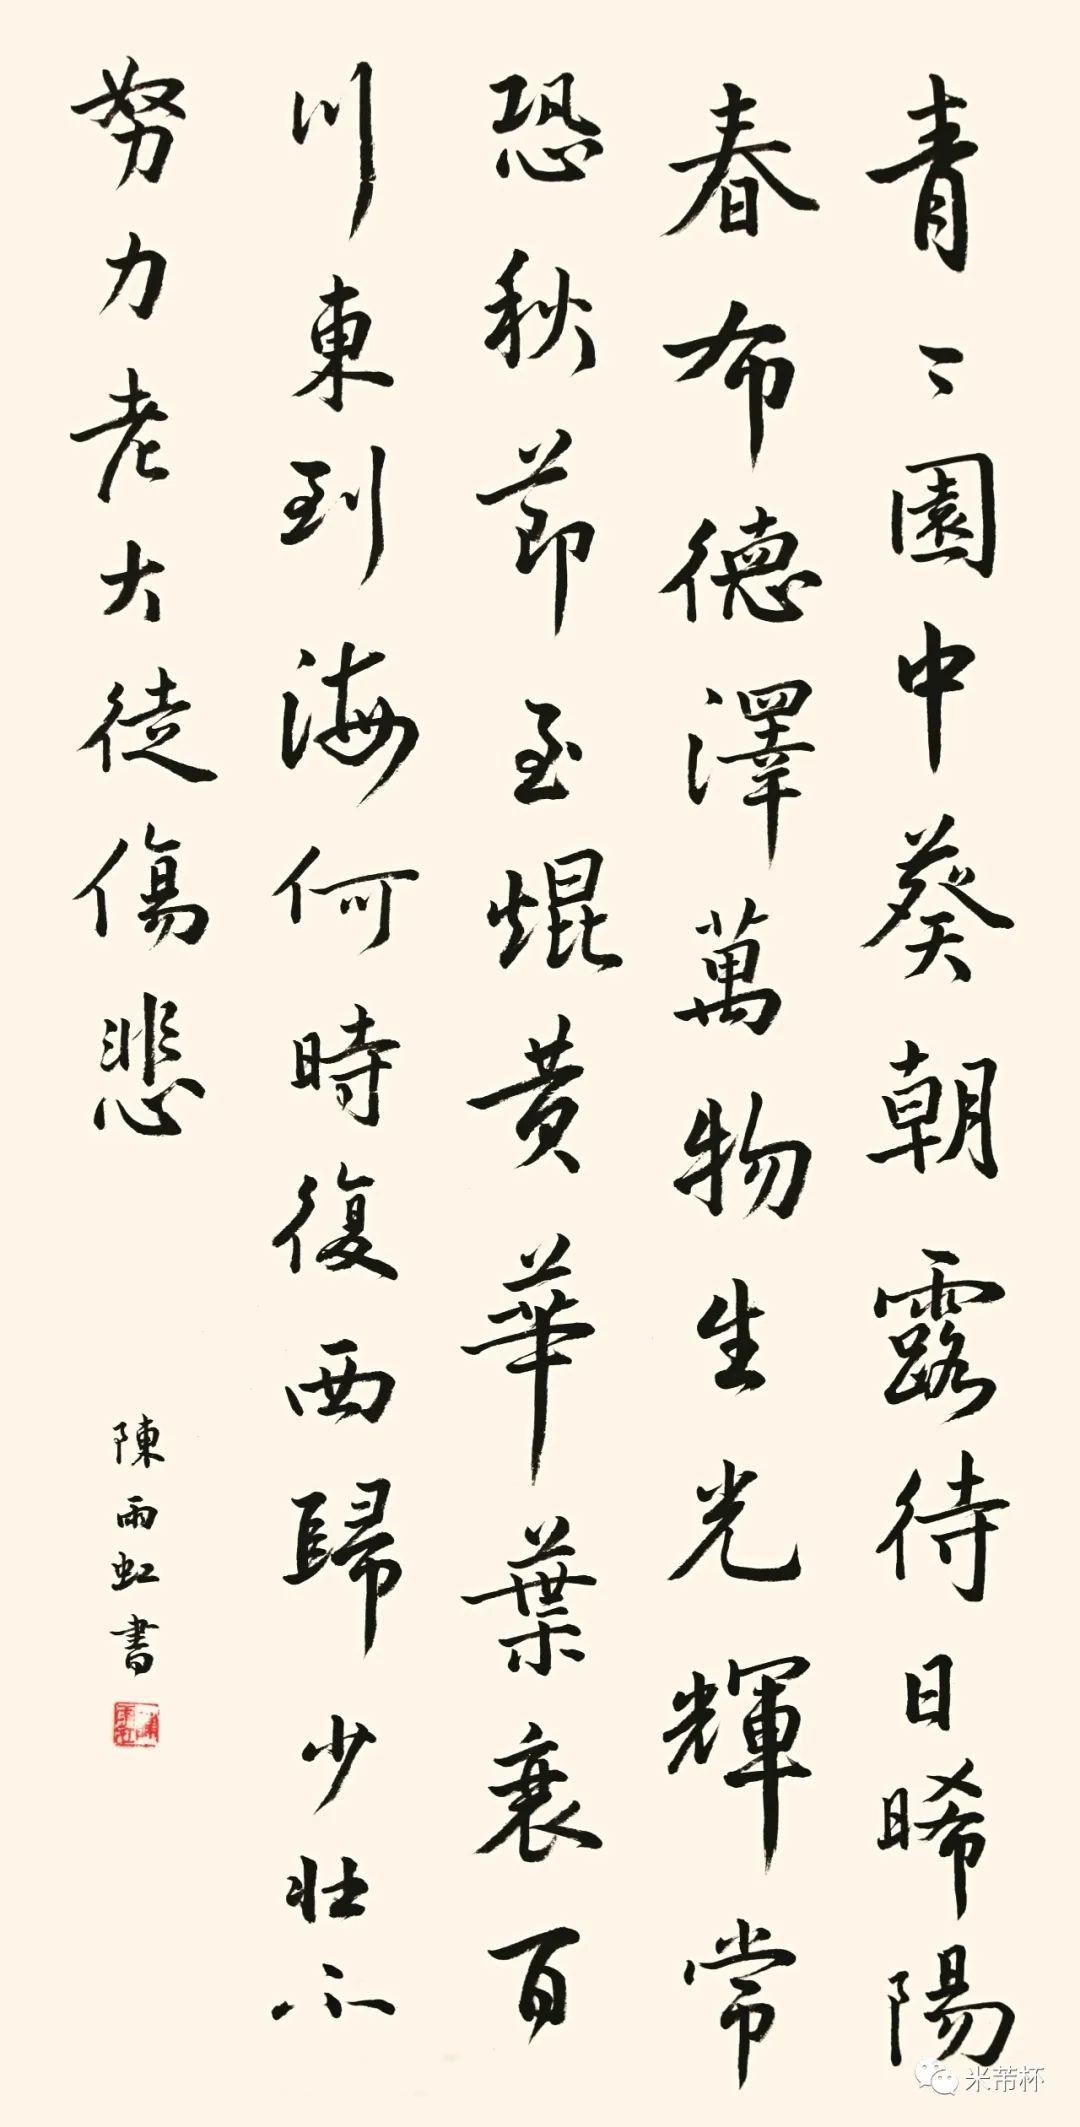 青〻園中葵朝露待日晞陽
春布德澤萬物生光輝常
恐秋節至焜黄華葉衰百
川東到海何時復西歸少壯不
努力老大徒傷悲
陳雨虹書
米芾杯